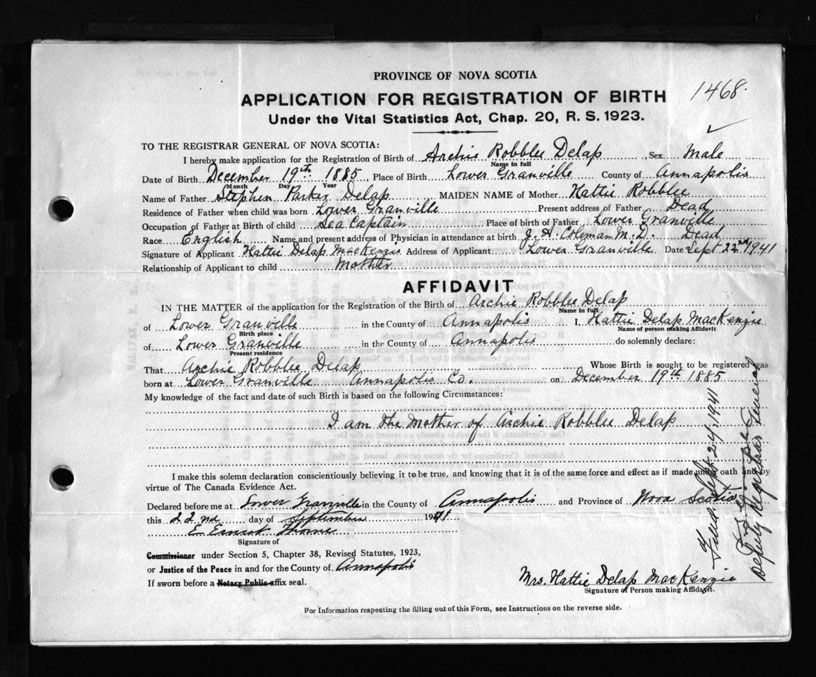 PROVINCE OF NOVA SCOTIA
1468.
APPLICATION FOR REGISTRATION OF BIRTH
Under the Vital Statistics Act, Chap. 20, R. S. 1923.
TO THE REGISTRAR GENERAL OF NOVA SCOTIA:
I hereby make application for the Registration of Birth of Archie Robblee Delap Sex Male
Name in full
Date of Birth December 19th 1885 Place of Birth Lower Granville County of Annapolis
Month Day Year
Name of Father Stephen Parker Delap MAIDEN NAME of Mother Hattie Robblee
Residence of Father when child was born Lower Granville Present address of Father Dead
Occupation of Father at Birth of child Sea Captain Place of birth of Father Lower Granville
Race English Name and present address of Physician in attendance at birth J. A. Coleman M. D. Dead
Signature of Applicant Hattie Delap MacKenzie Address of Applicant Lower Granville Date Sept 22nd 1941
Relationship of Applicant to child Mother
AFFIDAVIT
IN THE MATTER of the application for the Registration of the Birth of Archie Robblee Delap
Name in full
of Lower Granville in the County of Annapolis I, Hattie Delap MacKenzie
Birth place Name of person making Affidavit
of Lower Granville in the County of Annapolis do solemnly declare:
Present residence
That Archie Robblee Delap Whose Birth is sought to be registered was
born at Lower Granville Annapolis Co. on December 19th 1885
My knowledge of the fact and date of such Birth is based on the following Circumstances:
I am the Mother of Archie Robblee Delap
I make this solemn declaration conscientiously believing it to be true, and knowing that it is of the same force and effect as if made under oath and by
virtue of The Canada Evidence Act.
Declared before me at Lower Granville in the County of Annapolis and Province of Nova Scotia
this 22nd day of September 1941
E Ernest Thorne
Signature of
Commissioner under Section 5, Chapter 38, Revised Statutes, 1923,
or Justice of the Peace in and for the County of Annapolis
If sworn before a Notary Public affix seal.
Mrs. Hattie Delap MacKenzie
Signature of Person making Affidavit.
For Information respecting the filling out of this Form, see Instructions on the reverse side.
Sept 24, 1941
Deputy Registrar General